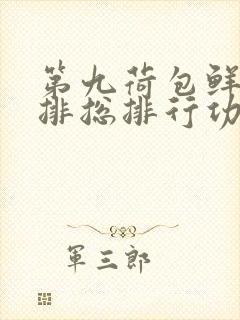 第九荷包鲜
排挖排行功
军三郎